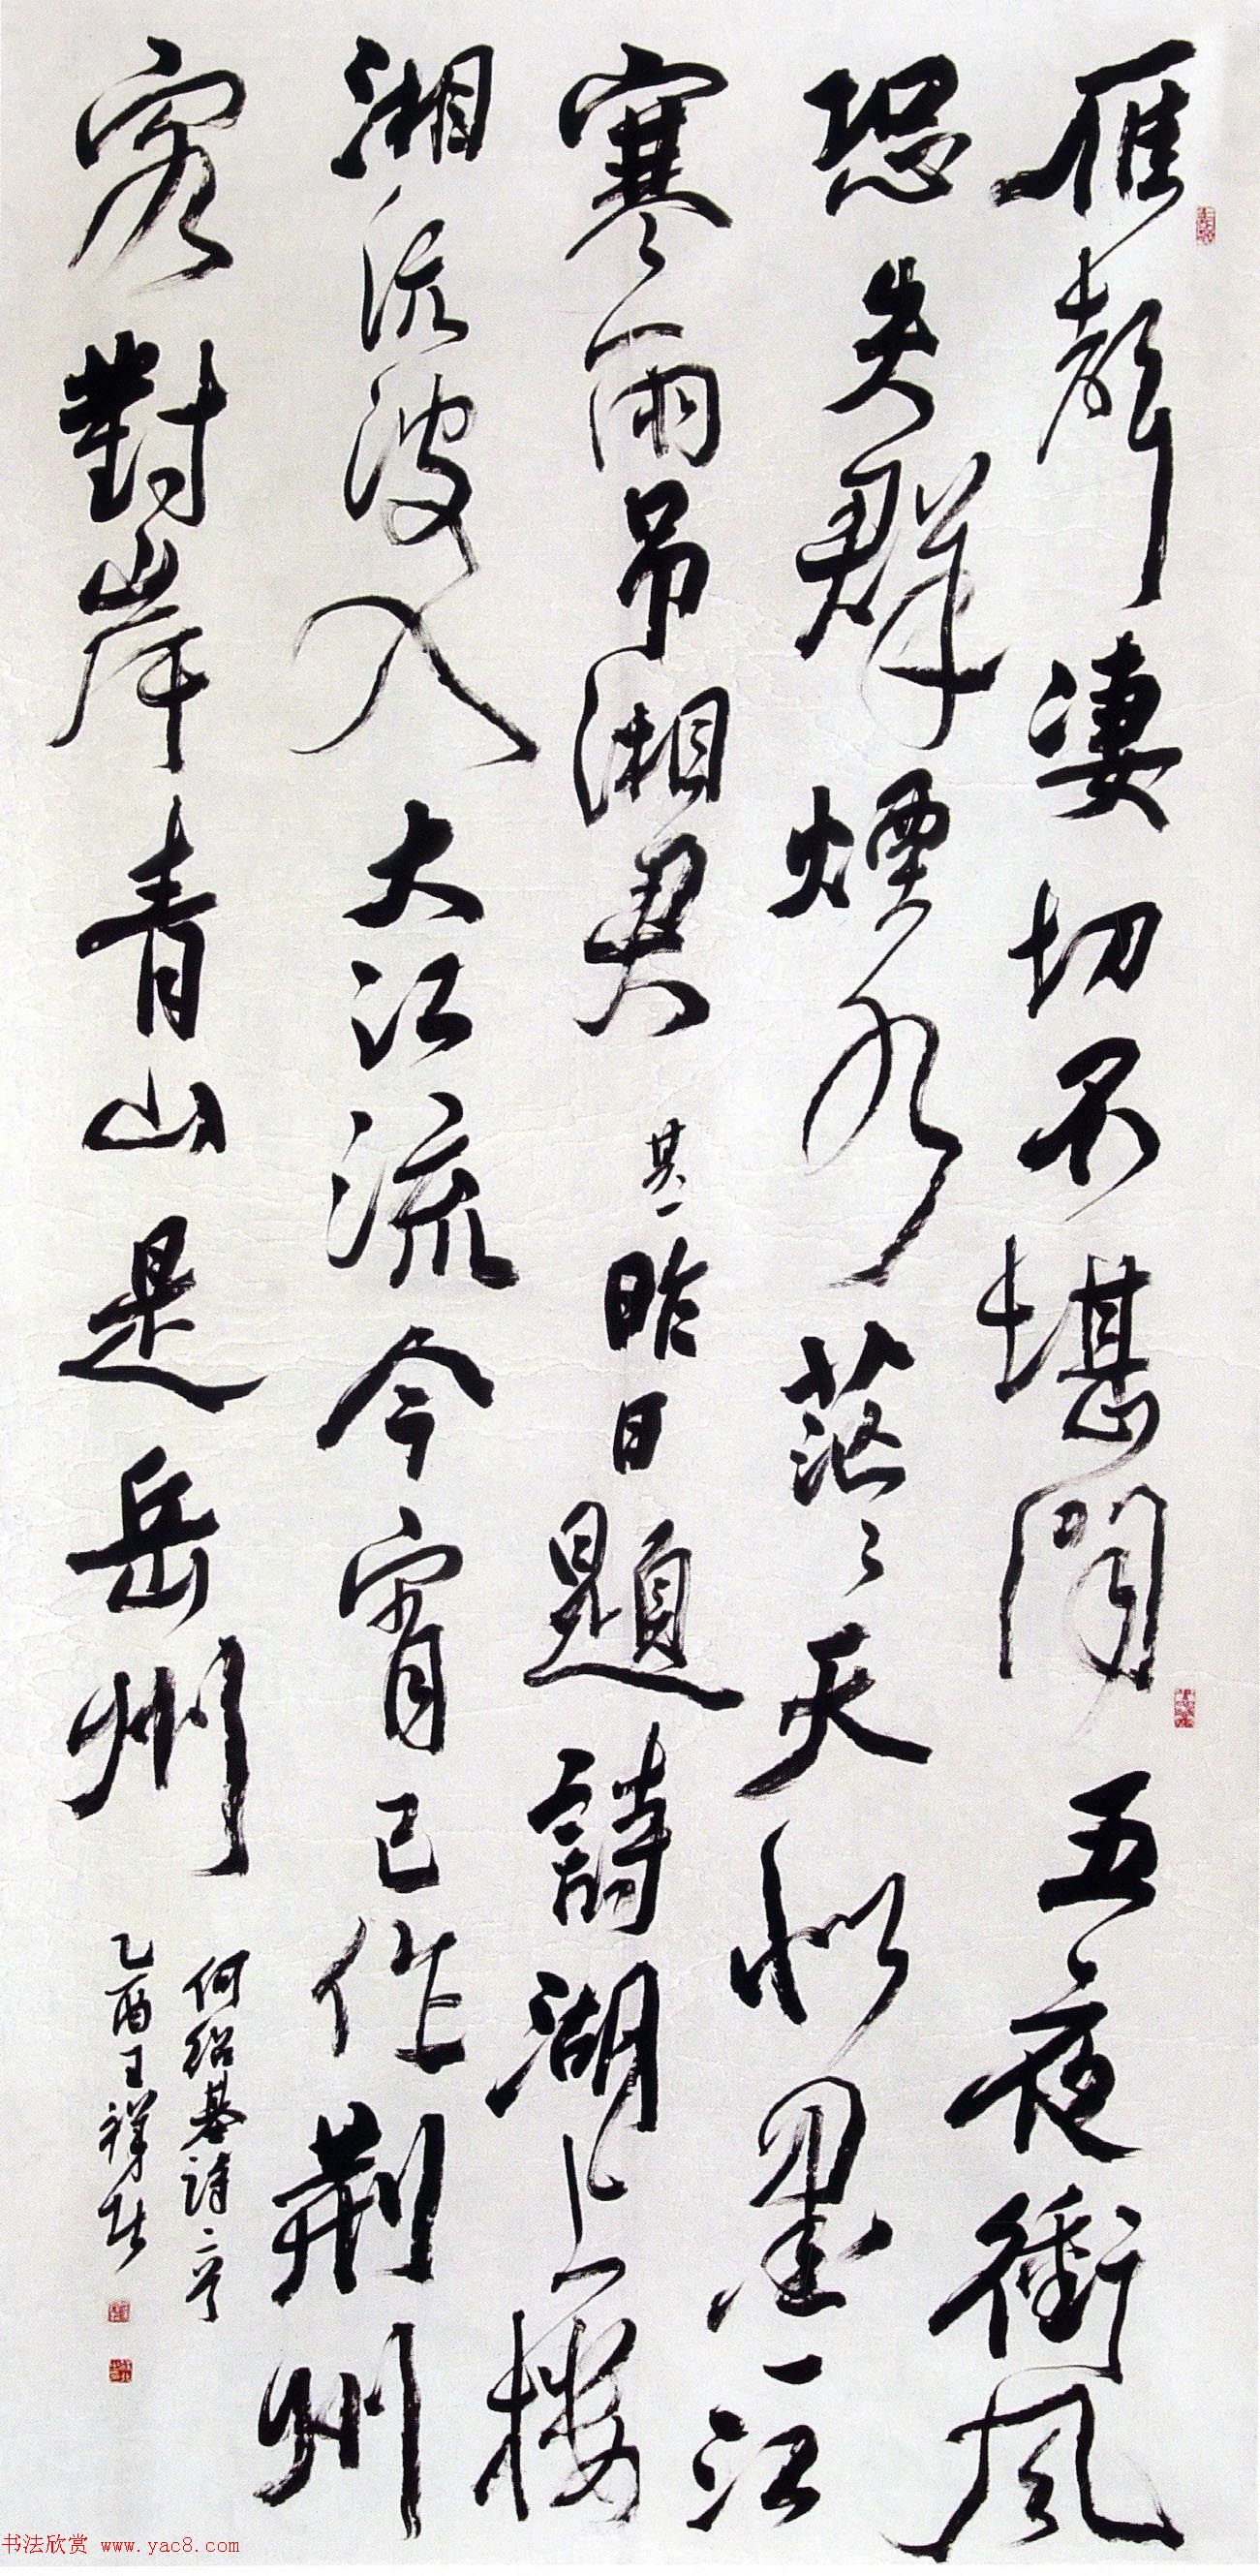 雁聲凄切不堪聞五夜衝風
恐失群煙水茫〻天似墨一江
寒雨吊湘君其一昨日題詩湖上樓
湘沅波入大江流今宵已作荆州
客對岸青山是岳州
何绍基詩二首
乙酉王祥
书法欣赏 www.yac8.com